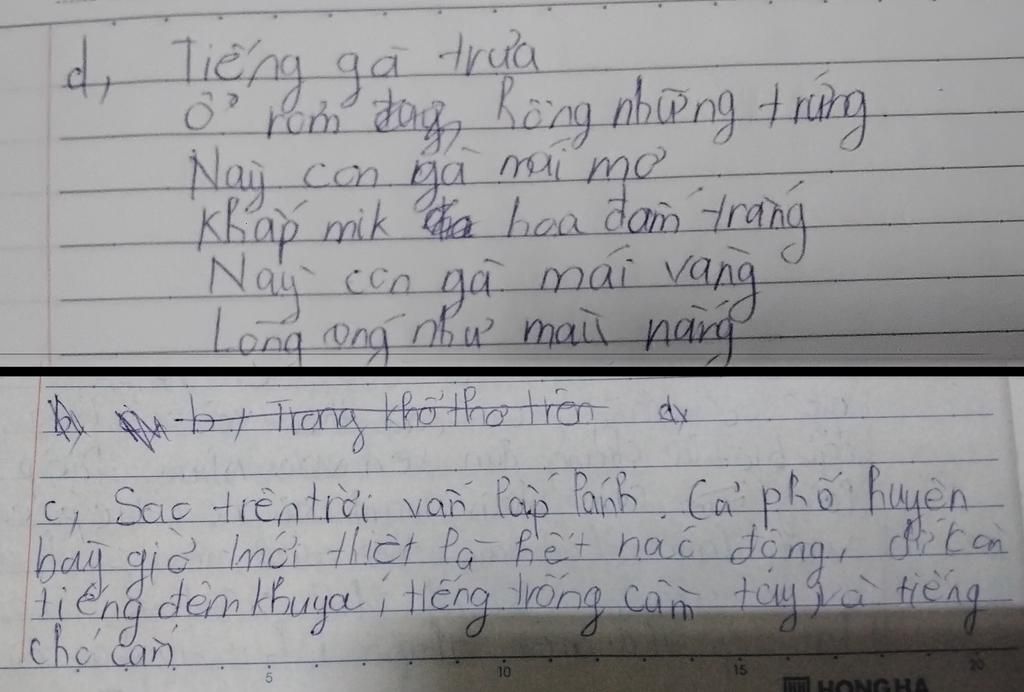 d, Tiếng gà trưa
Ổ rơm đay, hồng những trứng
Này con gà mái mơ
Khắp mik hoa đốm trắng
Này con gà mái vàng
Lông óng như màu nắng
b, Trong khổ thơ trên d,
c, Sao trên trời vẫn lấp lánh. Cả phố huyện
bây giờ mới thiệt là hết náo động, còn
tiếng đêm khuya, tiếng trống cầm tay và tiếng
chó cắn
5 10 15 20
HONG HA